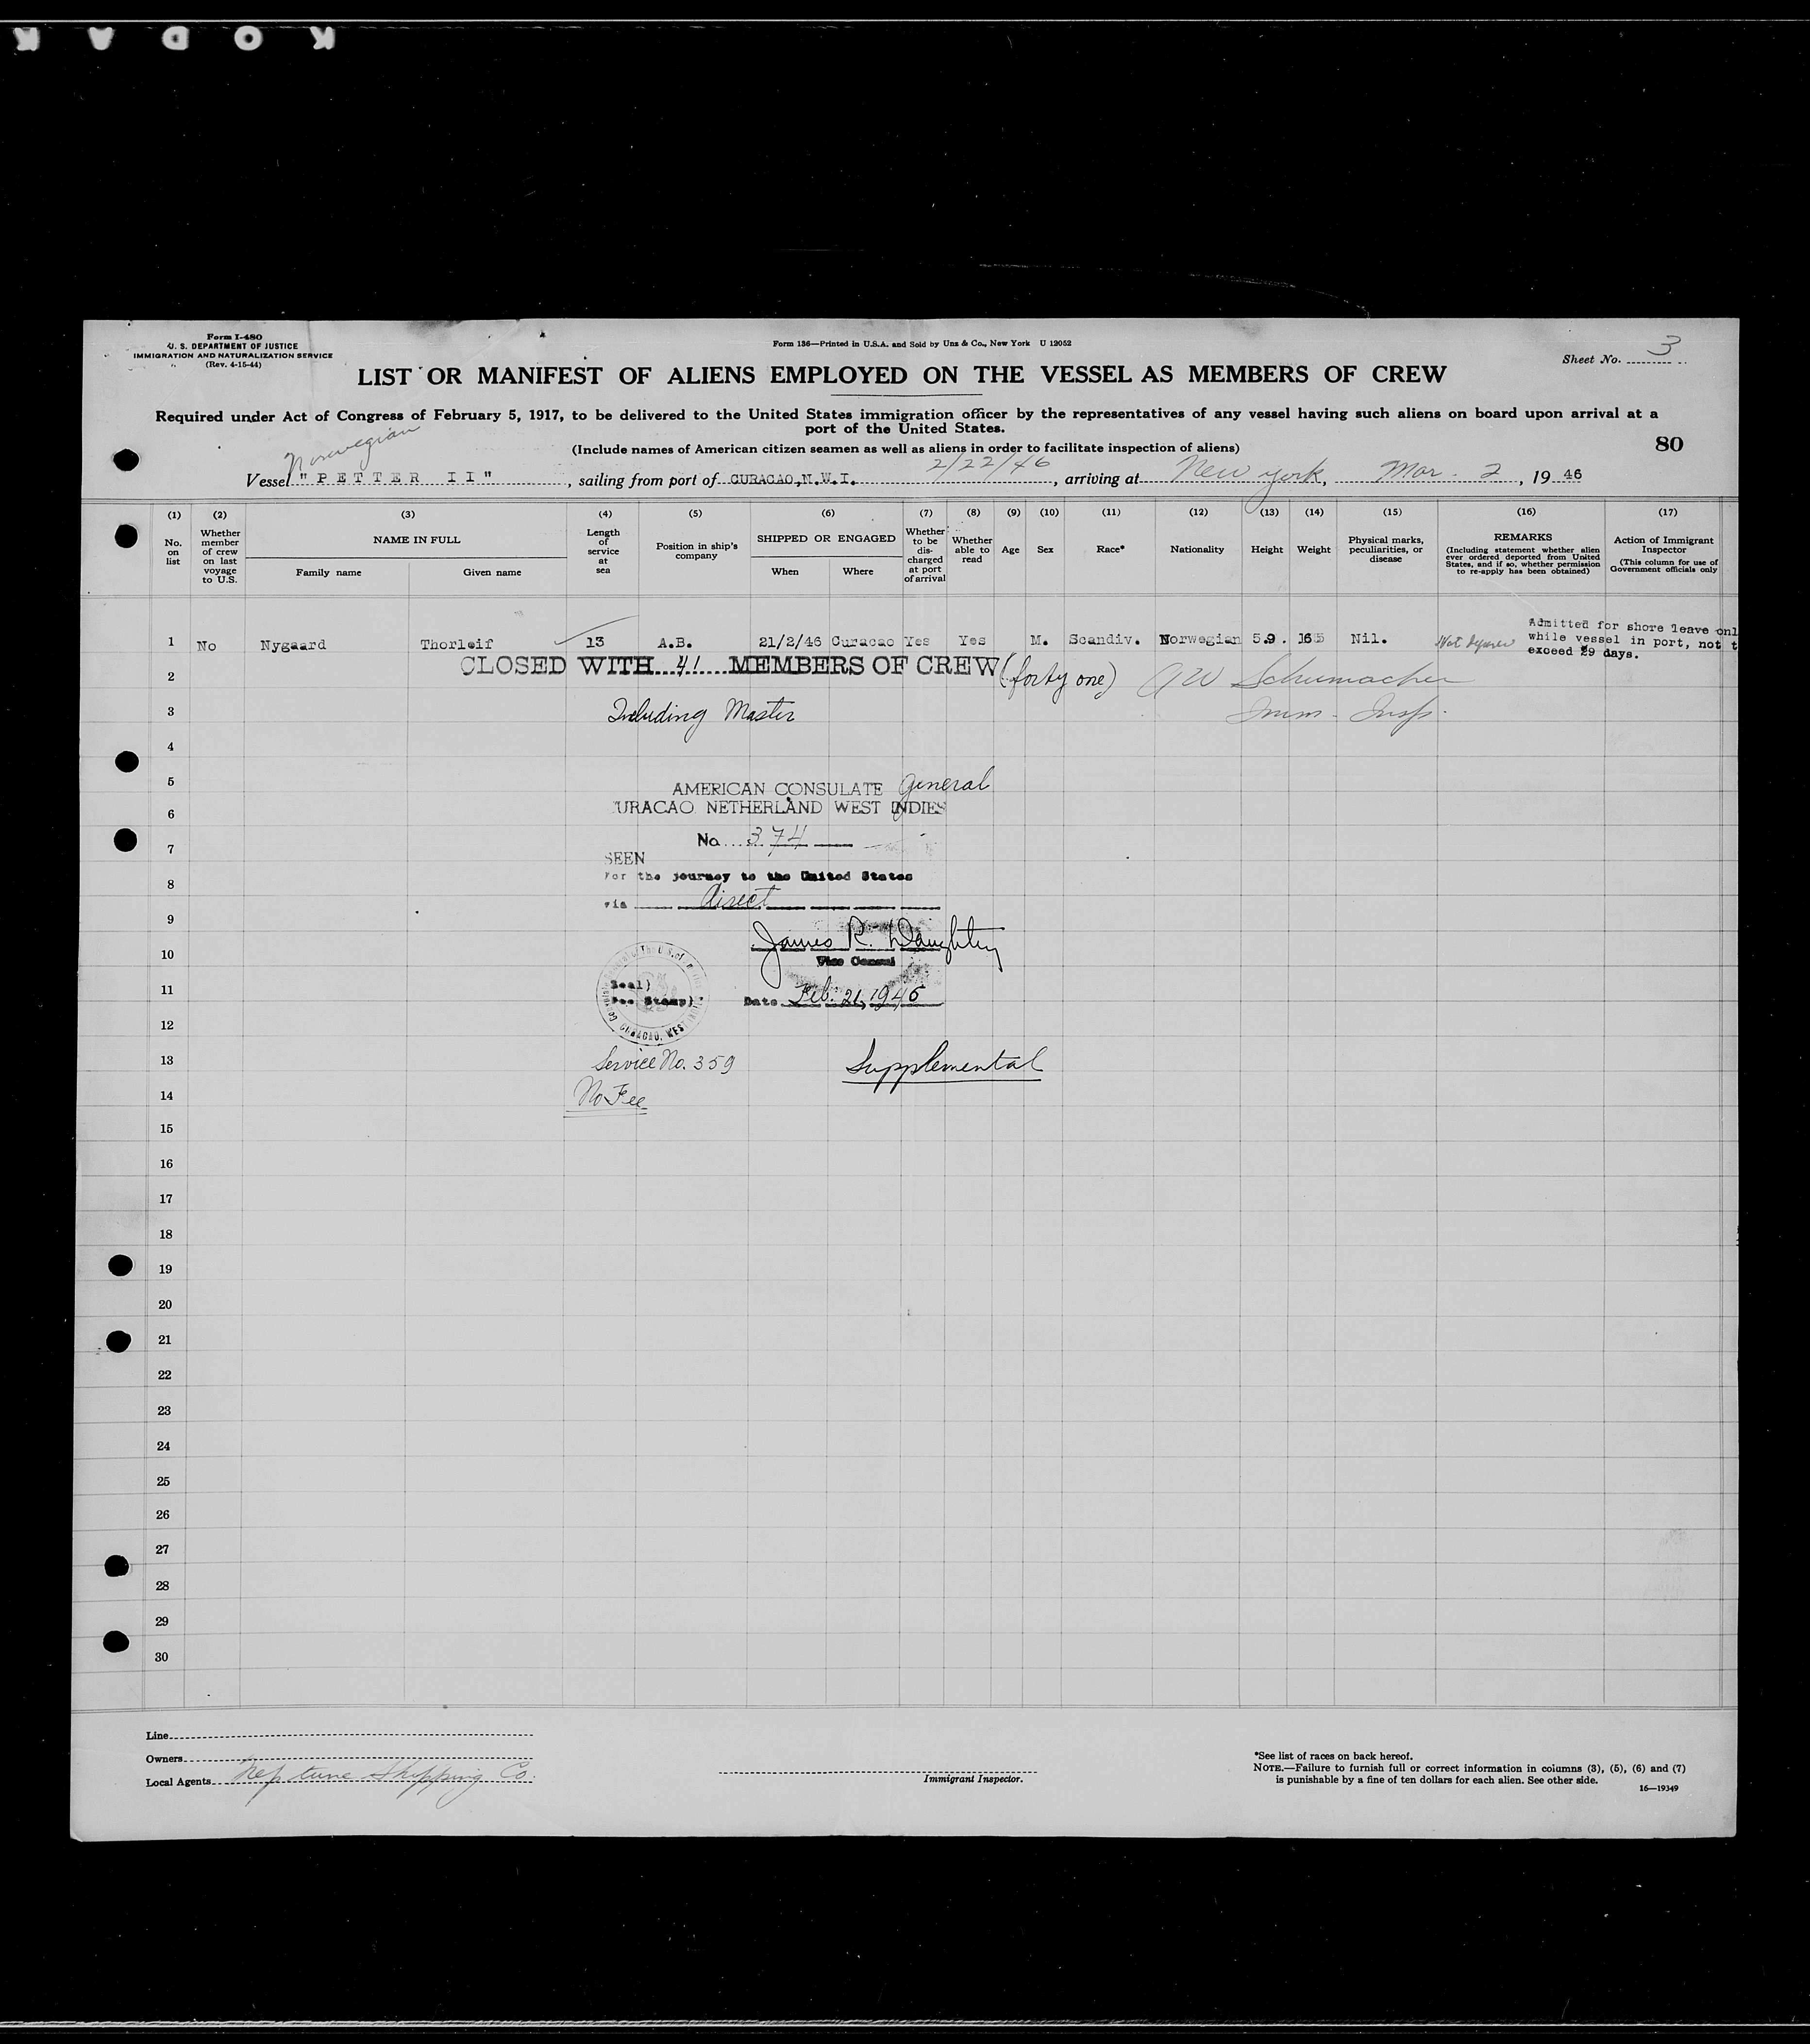 KODAK
Form I-480
U. S. DEPARTMENT OF JUSTICE
IMMIGRATION AND NATURALIZATION SERVICE
(Rev. 4-15-44)
Form 136—Printed in U.S.A. and Sold by Unz & Co., New York U 12052
Sheet No. 3
LIST OR MANIFEST OF ALIENS EMPLOYED ON THE VESSEL AS MEMBERS OF CREW
Required under Act of Congress of February 5, 1917, to be delivered to the United States immigration officer by the representatives of any vessel having such aliens on board upon arrival at a
port of the United States.
(Include names of American citizen seamen as well as aliens in order to facilitate inspection of aliens)
80
Norwegian
Vessel "PETTER II", sailing from port of CURACAO,N.W.I. 2/22/46, arriving at New York, Mar. 2, 1946
(1) No. on list
(2) Whether member of crew on last voyage to U.S.
(3) NAME IN FULL
Family name
Given name
(4) Length of service at sea
(5) Position in ship's company
(6) SHIPPED OR ENGAGED
When
Where
(7) Whether to be discharged at port of arrival
(8) Whether able to read
(9) Age
(10) Sex
(11) Race*
(12) Nationality
(13) Height
(14) Weight
(15) Physical marks, peculiarities, or disease
(16) REMARKS
(Including statement whether alien ever ordered deported from United States, and if so, whether permission to re-apply has been obtained)
(17) Action of Immigrant Inspector
(This column for use of Government officials only
1 No Nygaard Thorleif 13 A.B. 21/2/46 Curacao Yes Yes M. Scandiv. Norwegian 5.9. 165 Nil.
Admitted for shore leave onl
while vessel in port, not t
exceed 29 days.
CLOSED WITH 41 MEMBERS OF CREW (forty one) A W Schumacher
2
3 Including Master Imm. Insp.
4
5
AMERICAN CONSULATE General
URACAO NETHERLAND WEST INDIES
6
No. 374
7
SEEN
For the journey to the United States
8
via direct
9
James R. Daughtry
10
Vice Consul
11
Seal)
Fee Stamp)
Date Feb. 21, 1946
CURACAO, WEST INDIES
12
13 Service No. 359 Supplemental
14 No Fee
15
16
17
18
19
20
21
22
23
24
25
26
27
28
29
30
Line
Owners
Local Agents Neptune Shipping Co.
Immigrant Inspector.
*See list of races on back hereof.
NOTE.—Failure to furnish full or correct information in columns (3), (5), (6) and (7)
is punishable by a fine of ten dollars for each alien. See other side.
16—19349